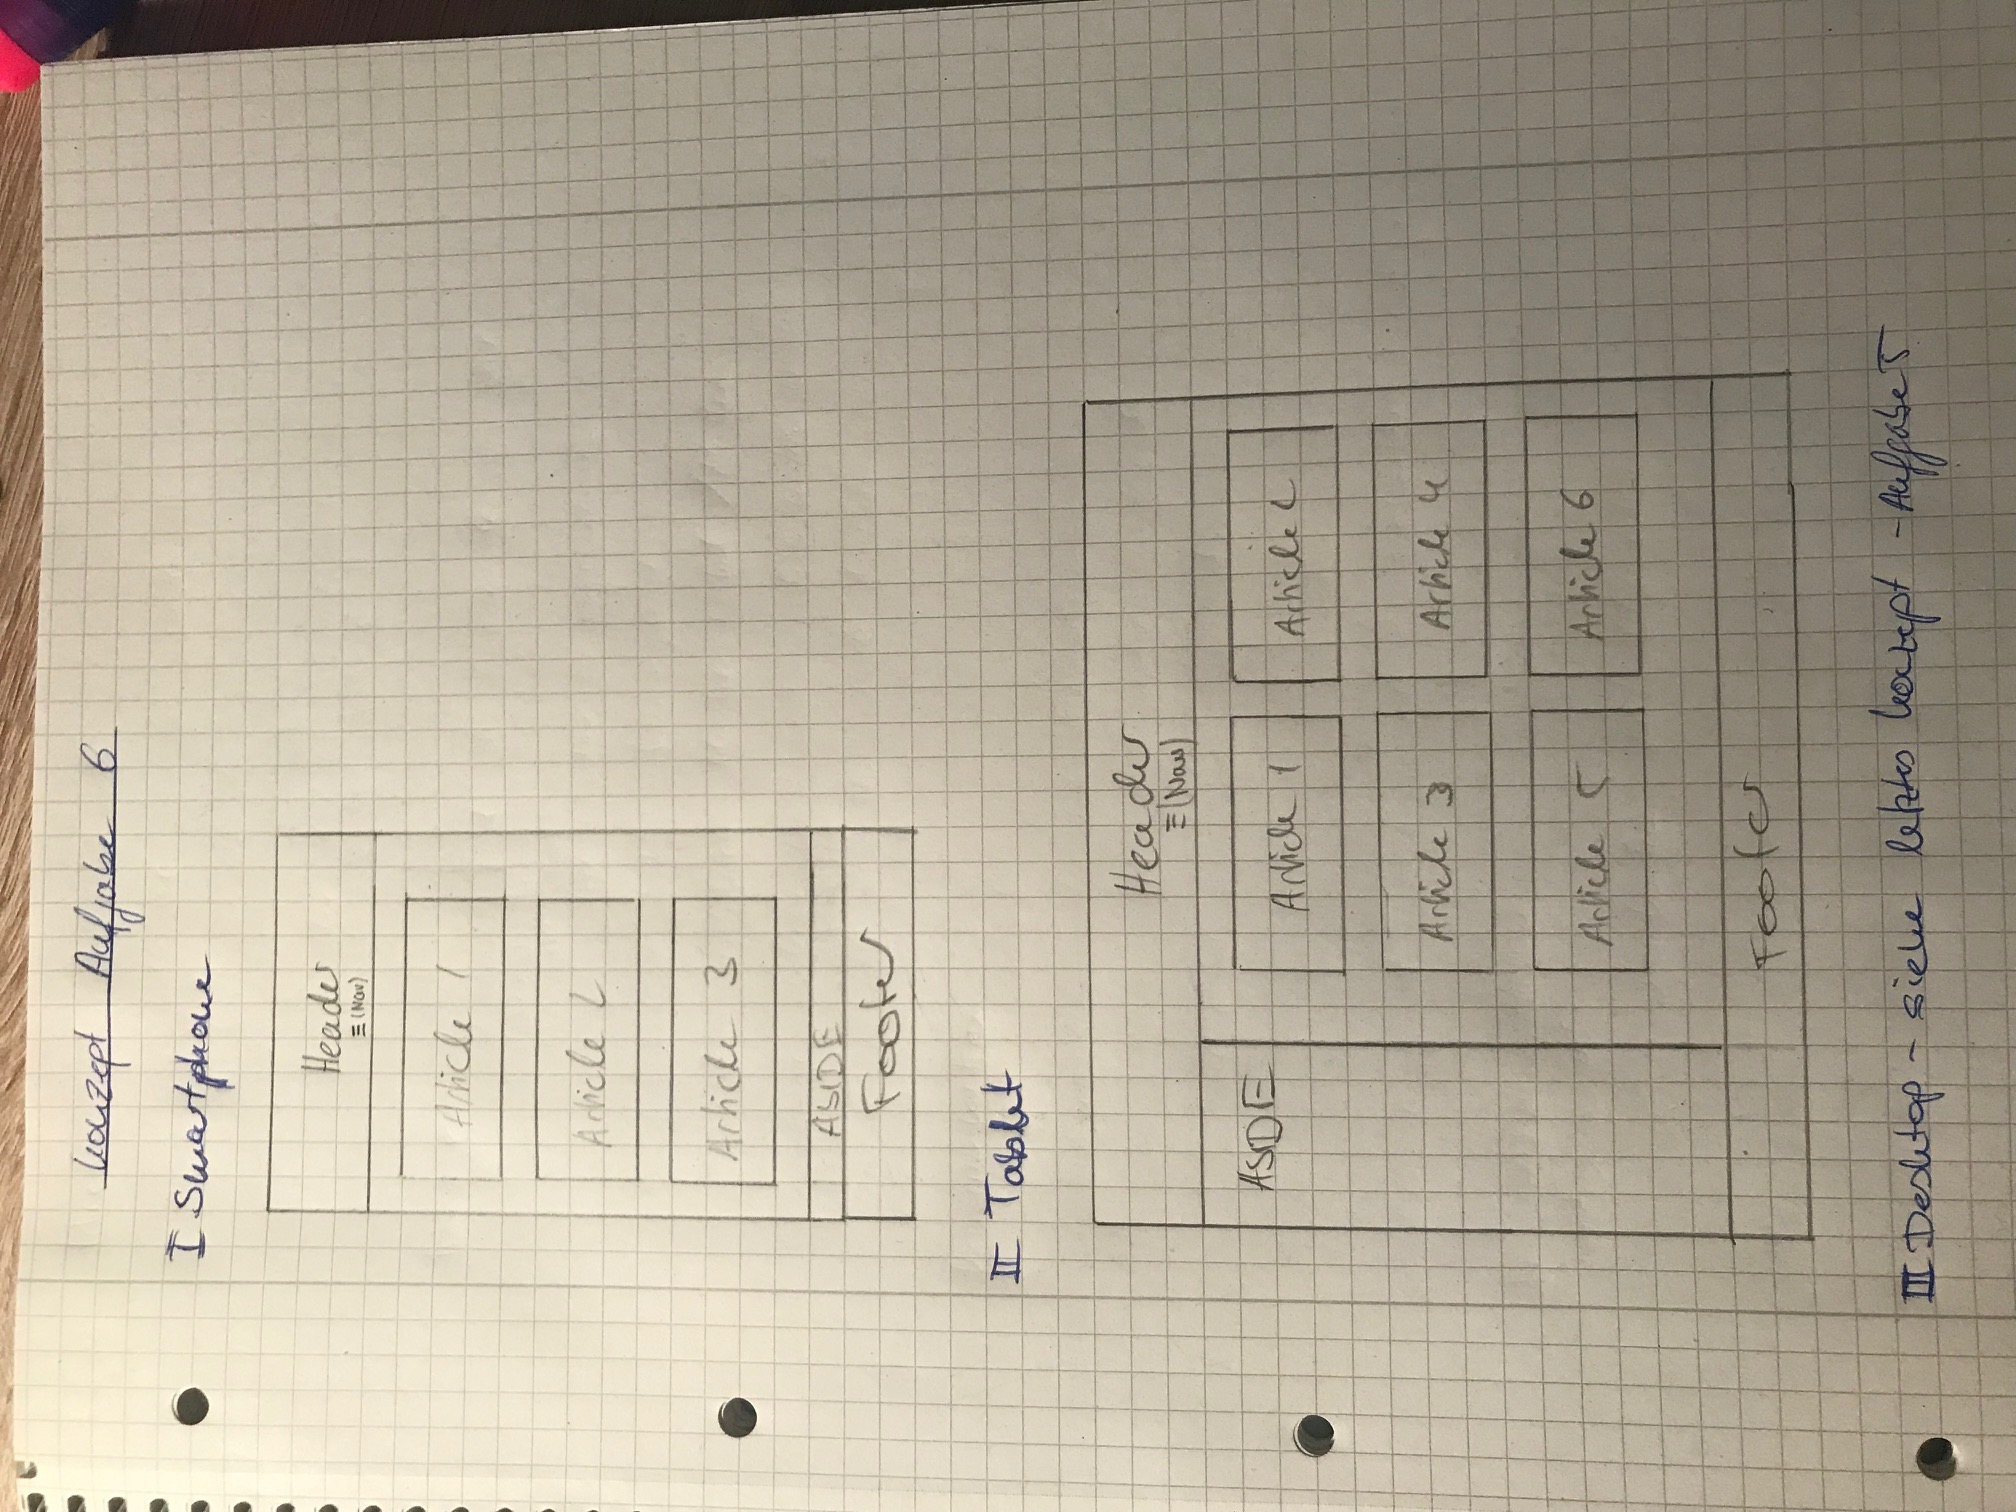 Konzept Aufgabe 6
I Smartphone
Header
≡ (Nav)
Article 1
Article 2
Article 3
ASIDE
Footer
II Tablet
Header
≡ (Nav)
ASIDE
Article 1
Article 2
Article 3
Article 4
Article 5
Article 6
Footer
III Desktop - siehe letztes Konzept - Aufgabe 5